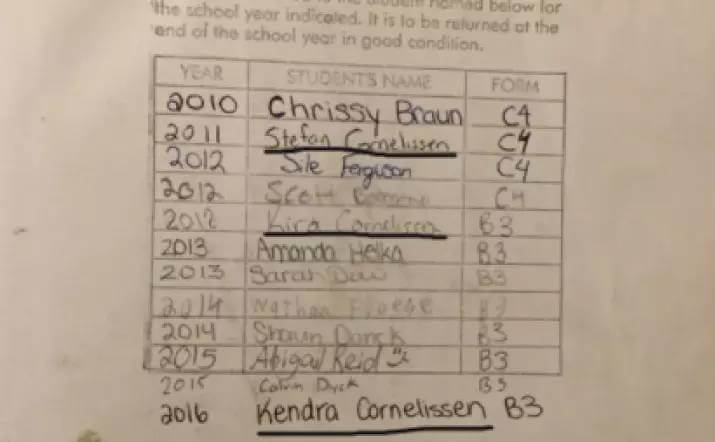 the student named below for
the school year indicated. It is to be returned at the
end of the school year in good condition.
YEAR STUDENT'S NAME FORM
2010 Chrissy Braun C4
2011 Stefan Cornelissen C4
2012 Sile Ferguson C4
2012 Scott C4
2012 Kira Cornelissen B3
2013 Amanda Helka B3
2013 Sarah B3
2014 Nathan Froese B3
2014 Shawn Danck B3
2015 Abigail Reid B3
2015 Calvin Dyck B3
2016 Kendra Cornelissen B3